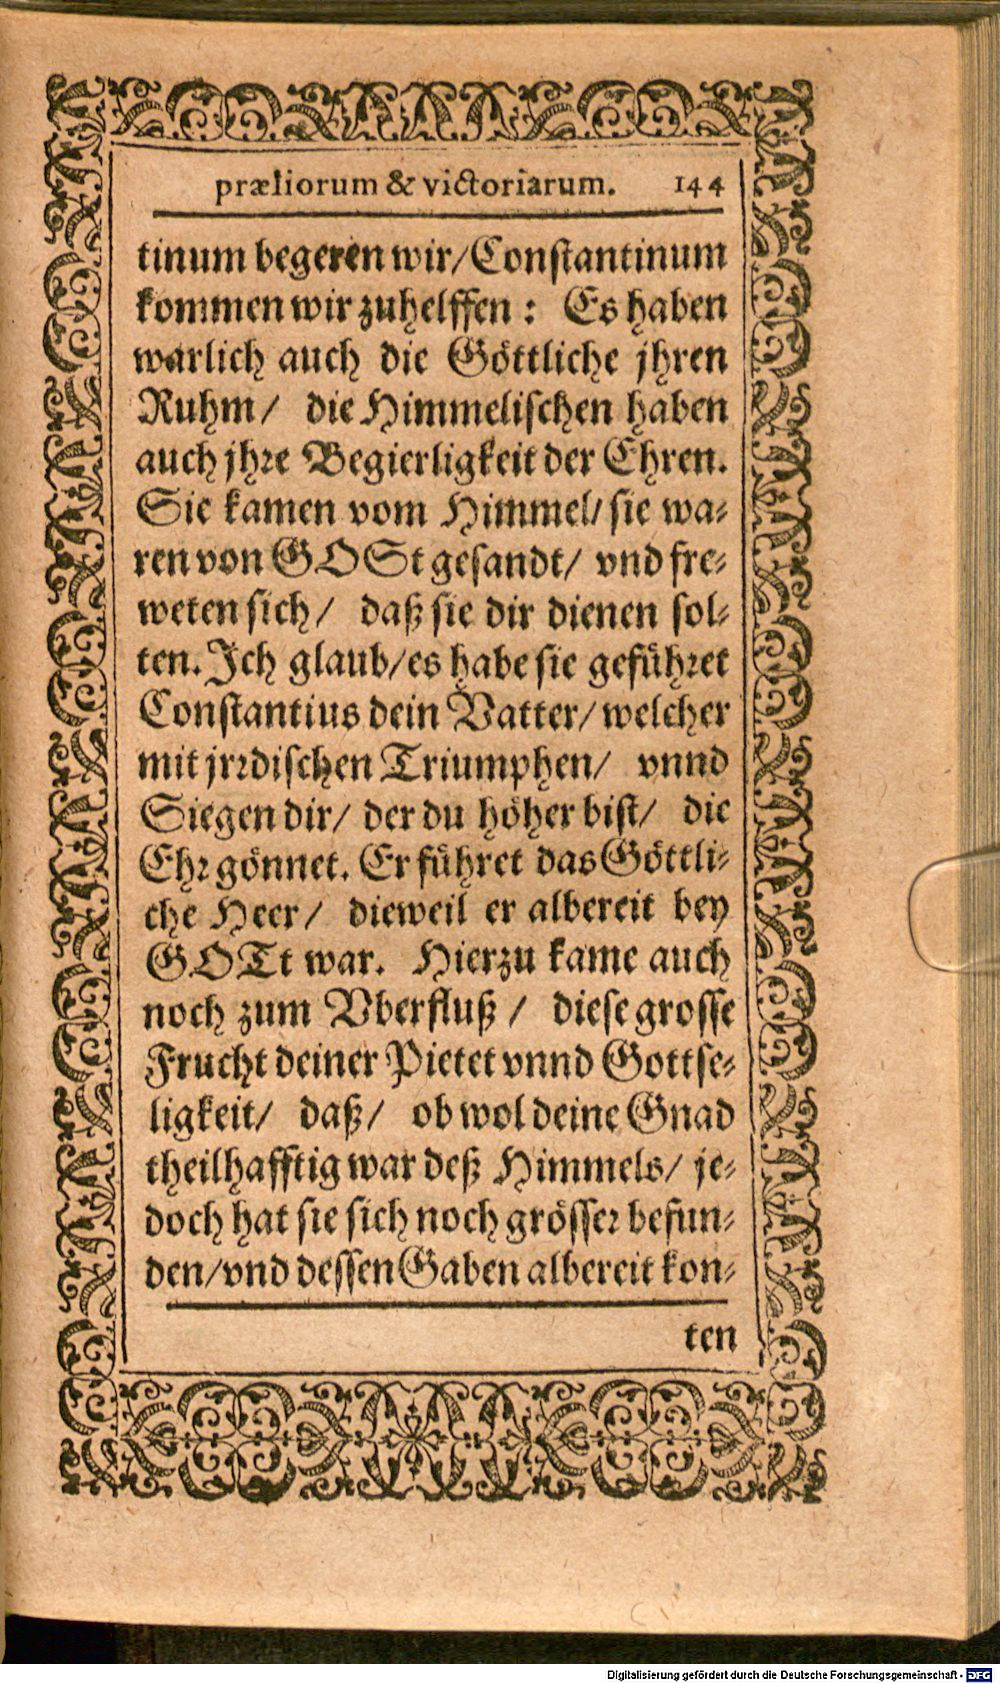 præliorum & victoriarum. 144
tinum begeren wir/Constantinum
kommen wir zuhelffen: Es haben
warlich auch die Göttliche jhren
Ruhm/ die Himmelischen haben
auch jhre Begierligkeit der Ehren.
Sie kamen vom Himmel/ sie wa-
ren von GOSt gesandt/ vnd fre-
weten sich/ daß sie dir dienen sol-
ten. Ich glaub/es habe sie geführet
Constantius dein Vatter/ welcher
mit jrrdischen Triumphen/ vnnd
Siegen dir/ der du höher bist/ die
Ehr gönnet. Er führet das Göttli-
che Heer/ dieweil er albereit bey
GOTt war. Hierzu kame auch
noch zum Vberfluß/ diese grosse
Frucht deiner Pietet vnnd Gottse-
ligkeit/ daß/ ob wol deine Gnad
theilhafftig war deß Himmels/ je-
doch hat sie sich noch grösser befun-
den/vnd dessen Gaben albereit kon-
ten
Digitalisierung gefördert durch die Deutsche Forschungsgemeinschaft - DFG